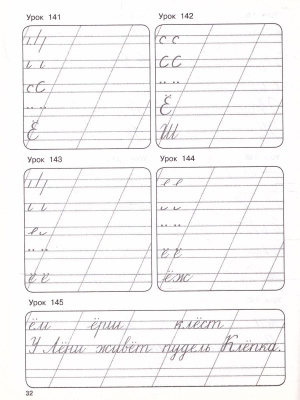 Урок 141
Урок 142
с с
сС
СС
Ё
Ё
Ш
Урок 143
Урок 144
е е
ё ё
ё ё
ёж
Урок 145
ёрш клёст
У Лёни живёт пудель Клёпка.
32